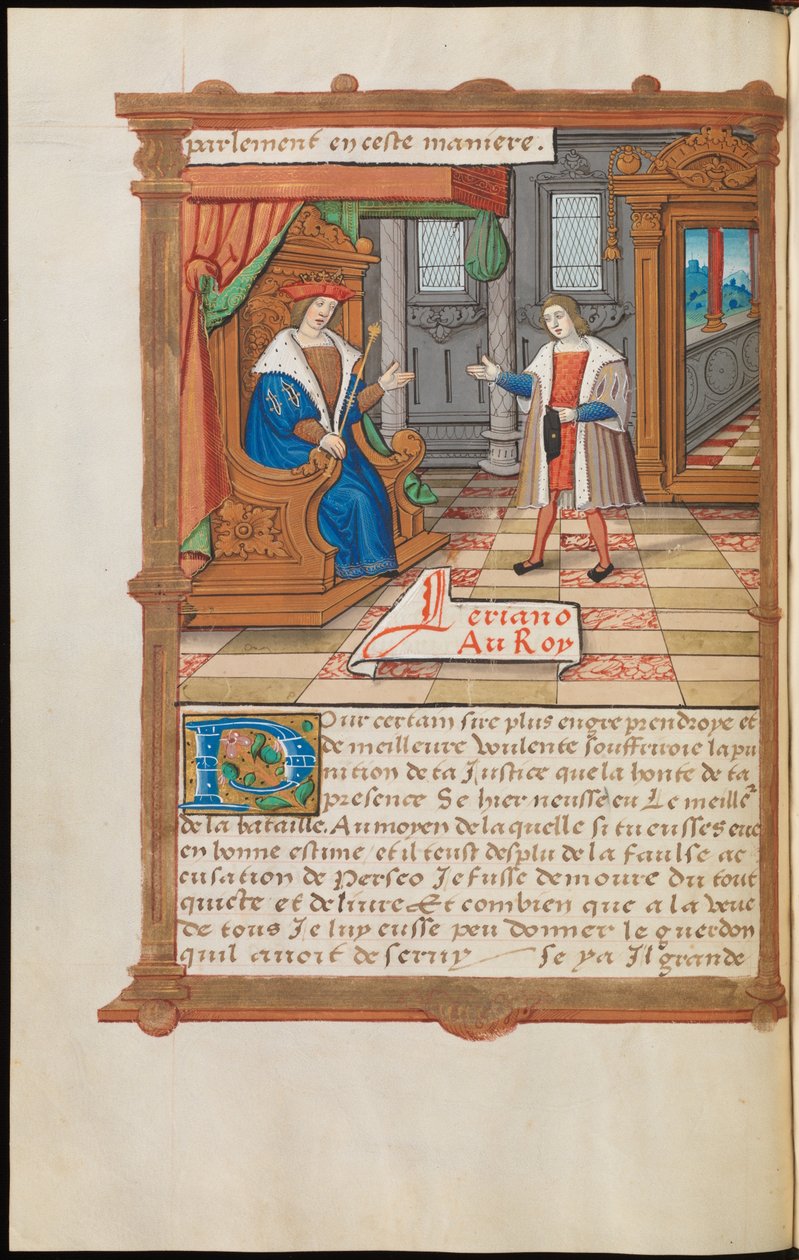 parlement en ceste maniere.
Leriano
Au Roy
Pour certain sire plus engre prendroye et
de meilleure voulente souffriroie la pu
nition de ta Justice que la honte de ta
presence Se hier neusse eu Le meille^r
de la bataille. Au moyen de laquelle si tu eusses eue
en bonne estime, et il teust desplu de la faulse ac
cusation de Perseo Je fusse demoure du tout
quicte et deliure Et combien que a la veue
de tous Je luy eusse peu donner le guerdon
quil auoit deseruy se ya Il grande